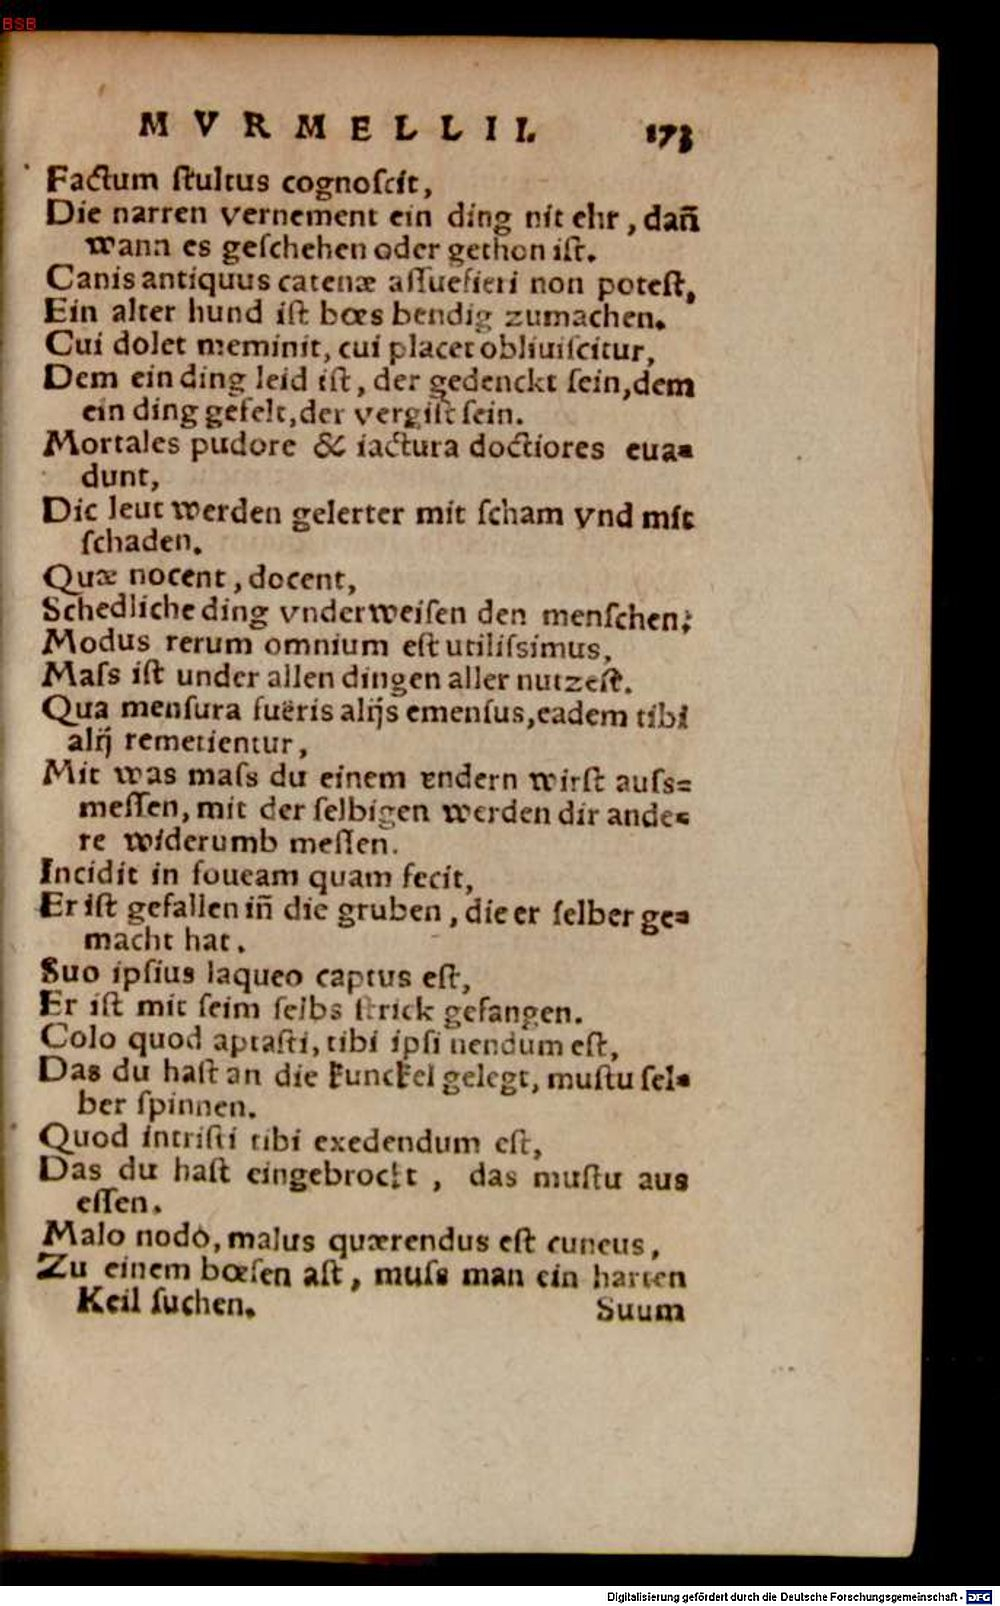 BSB
MVRMELLII. 173
Factum ſtultus cognoſcit,
Die narren vernement ein ding nit ehr, dañ
wann es geſchehen oder gethon iſt.
Canis antiquus catenæ aſſuefieri non poteſt,
Ein alter hund iſt bœs bendig zumachen.
Cui dolet meminit, cui placet obliuiſcitur,
Dem ein ding leid iſt, der gedenckt ſein, dem
ein ding gefelt, der vergiſt ſein.
Mortales pudore & iactura doctiores eua-
dunt,
Die leut werden gelerter mit ſcham vnd mit
ſchaden.
Quæ nocent, docent,
Schedliche ding vnderweiſen den menſchen;
Modus rerum omnium eſt utiliſsimus,
Maſs iſt under allen dingen aller nutzeſt.
Qua menſura fuëris alijs emenſus, eadem tibi
alij remetientur,
Mit was maſs du einem endern wirſt auſs-
meſſen, mit der ſelbigen werden dir ande-
re widerumb meſſen.
Incidit in foueam quam fecit,
Er iſt gefallen iñ die gruben, die er ſelber ge-
macht hat.
Suo ipſius laqueo captus eſt,
Er iſt mit ſeim ſelbs ſtrick gefangen.
Colo quod aptaſti, tibi ipſi nendum eſt,
Das du haſt an die kunckel gelegt, muſtu ſel-
ber ſpinnen.
Quod intriſti tibi exedendum eſt,
Das du haſt eingebrockt, das muſtu aus
eſſen.
Malo nodò, malus quærendus eſt cuneus,
Zu einem bœſen aſt, muſs man ein harten
Keil ſuchen. Suum
Digitalisierung gefördert durch die Deutsche Forschungsgemeinschaft - DFG